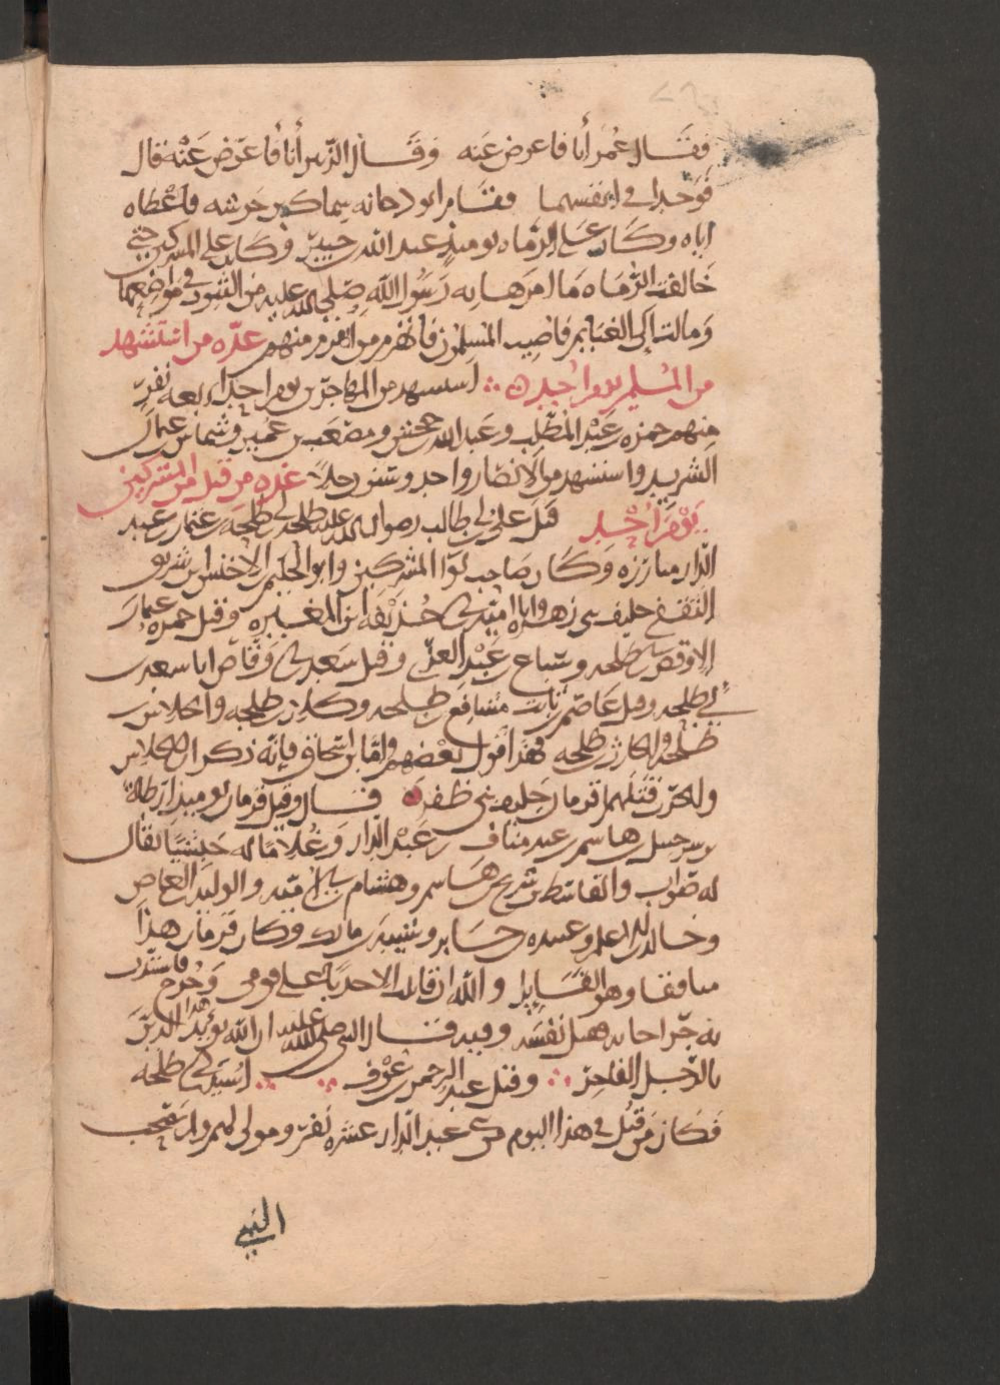 فقال عمر أنا فاعرض عنه وقال الزبير أنا فاعرض عنه قال
فوجدا في انفسهما فقام ابو دجانه سماك بن خرشه فاعطاه
اياه وكان على الرماه يوميذ عبد الله بن جبير وكان على المشركين حتى
خالفت الرماه ما امرها به رسول الله صلى الله عليه من الثبوت في مواضعها
ومالت الى الغنايم فاصيب المسلمون فانهزم من انهزم منهم عدة من استشهد
من المسلمين يوم احد استشهد من المهاجرين يوم احد اربعه نفر
منهم حمزه بن عبد المطلب وعبد الله بن جحش ومصعب بن عمير وشماس بن عثمان
الشريد واستشهد من الانصار واحد وستون رجلا عدة من قتل من المشركين
يوم احد قتل علي بن ابي طالب رضوان الله عليه طلحه بن ابي طلحه بن عثمان بن عبد
الدار مبارزه وكان صاحب لوا المشركين وابو الحكم بن الاخنس بن شريق
الثقفي حليف بني زهره وابا اميه بن ابي حذيفه ابن المغيره وقتل حمزه عثمان
بن طلحه وسباع بن عبد العزى وقتل سعد بن ابي وقاص ابا سعد بن
ابي طلحه وقتل عاصم بن ثابت مسافع بن طلحه وكلاب بن طلحه والجلاس بن
طلحه والحارث بن طلحه فهذا قول بعضهم واما ابن اسحاق فإنه ذكر ان الجلاس
والحرث قتلهما قزمان حليف بني ظفر قال وقتل قزمان يوميذ ارطاة
بن شرحبيل بن هاشم بن عبد مناف بن عبد الدار وغلاما له حبشيا يقال
له صواب والقاسط بن شريح بن هاشم وهشام بن ابي اميه والوليد بن العاص
وخالد بن الاعلم وعبيده بن جابر وشيبه بن مالك وكان قزمان هذا
منافقا وهو القايل والله ان قاتلت الا حدبا على قومي وخرج فاشتدت
به جراحاته فقتل نفسه وفيه قال النبي صلى الله عليه ان الله يؤيد هذا الدين
بالرجل الفاجر وقتل عبد الرحمن بن عوف اسيد بن ابي طلحه
فكان من قتل في هذا اليوم من بني عبد الدار عشره نفر ومولى لهم وارتحب